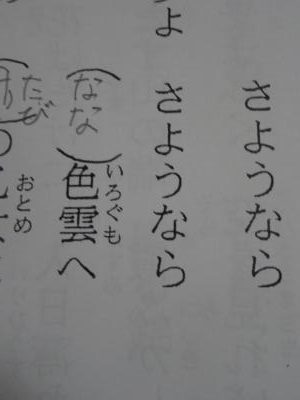 さようなら
さようなら
(なな)色雲へ
いろぐも
たび
おとめ